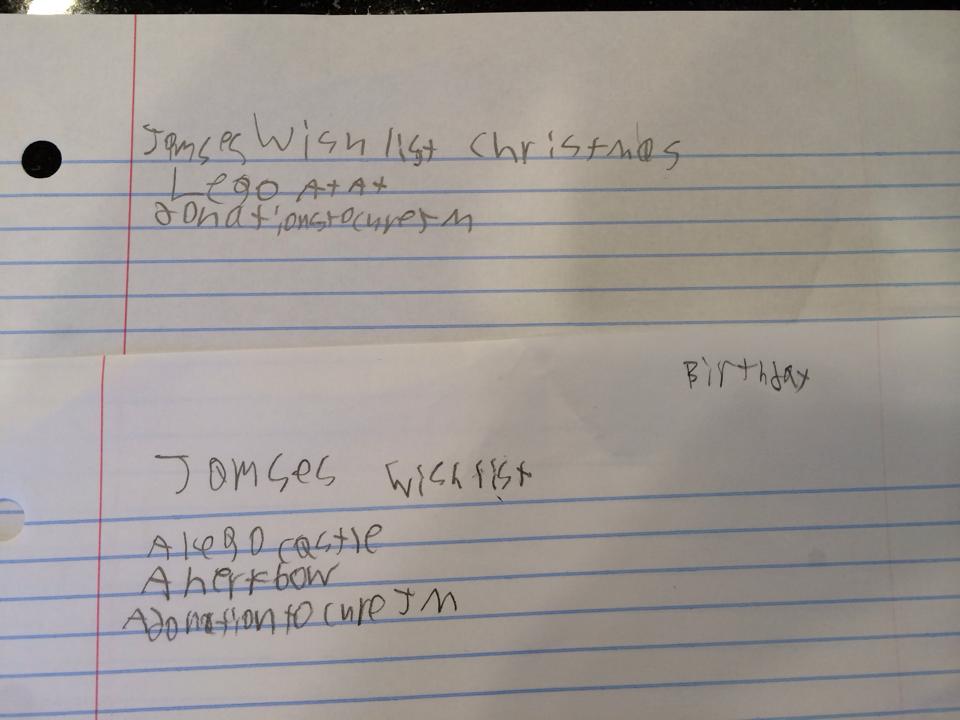 Jamses Wish list Christmas
Lego AtAt
donationstocureJM
Birthday
Jamses wish list
A lego castle
A nerf bow
Adonation to cure JM